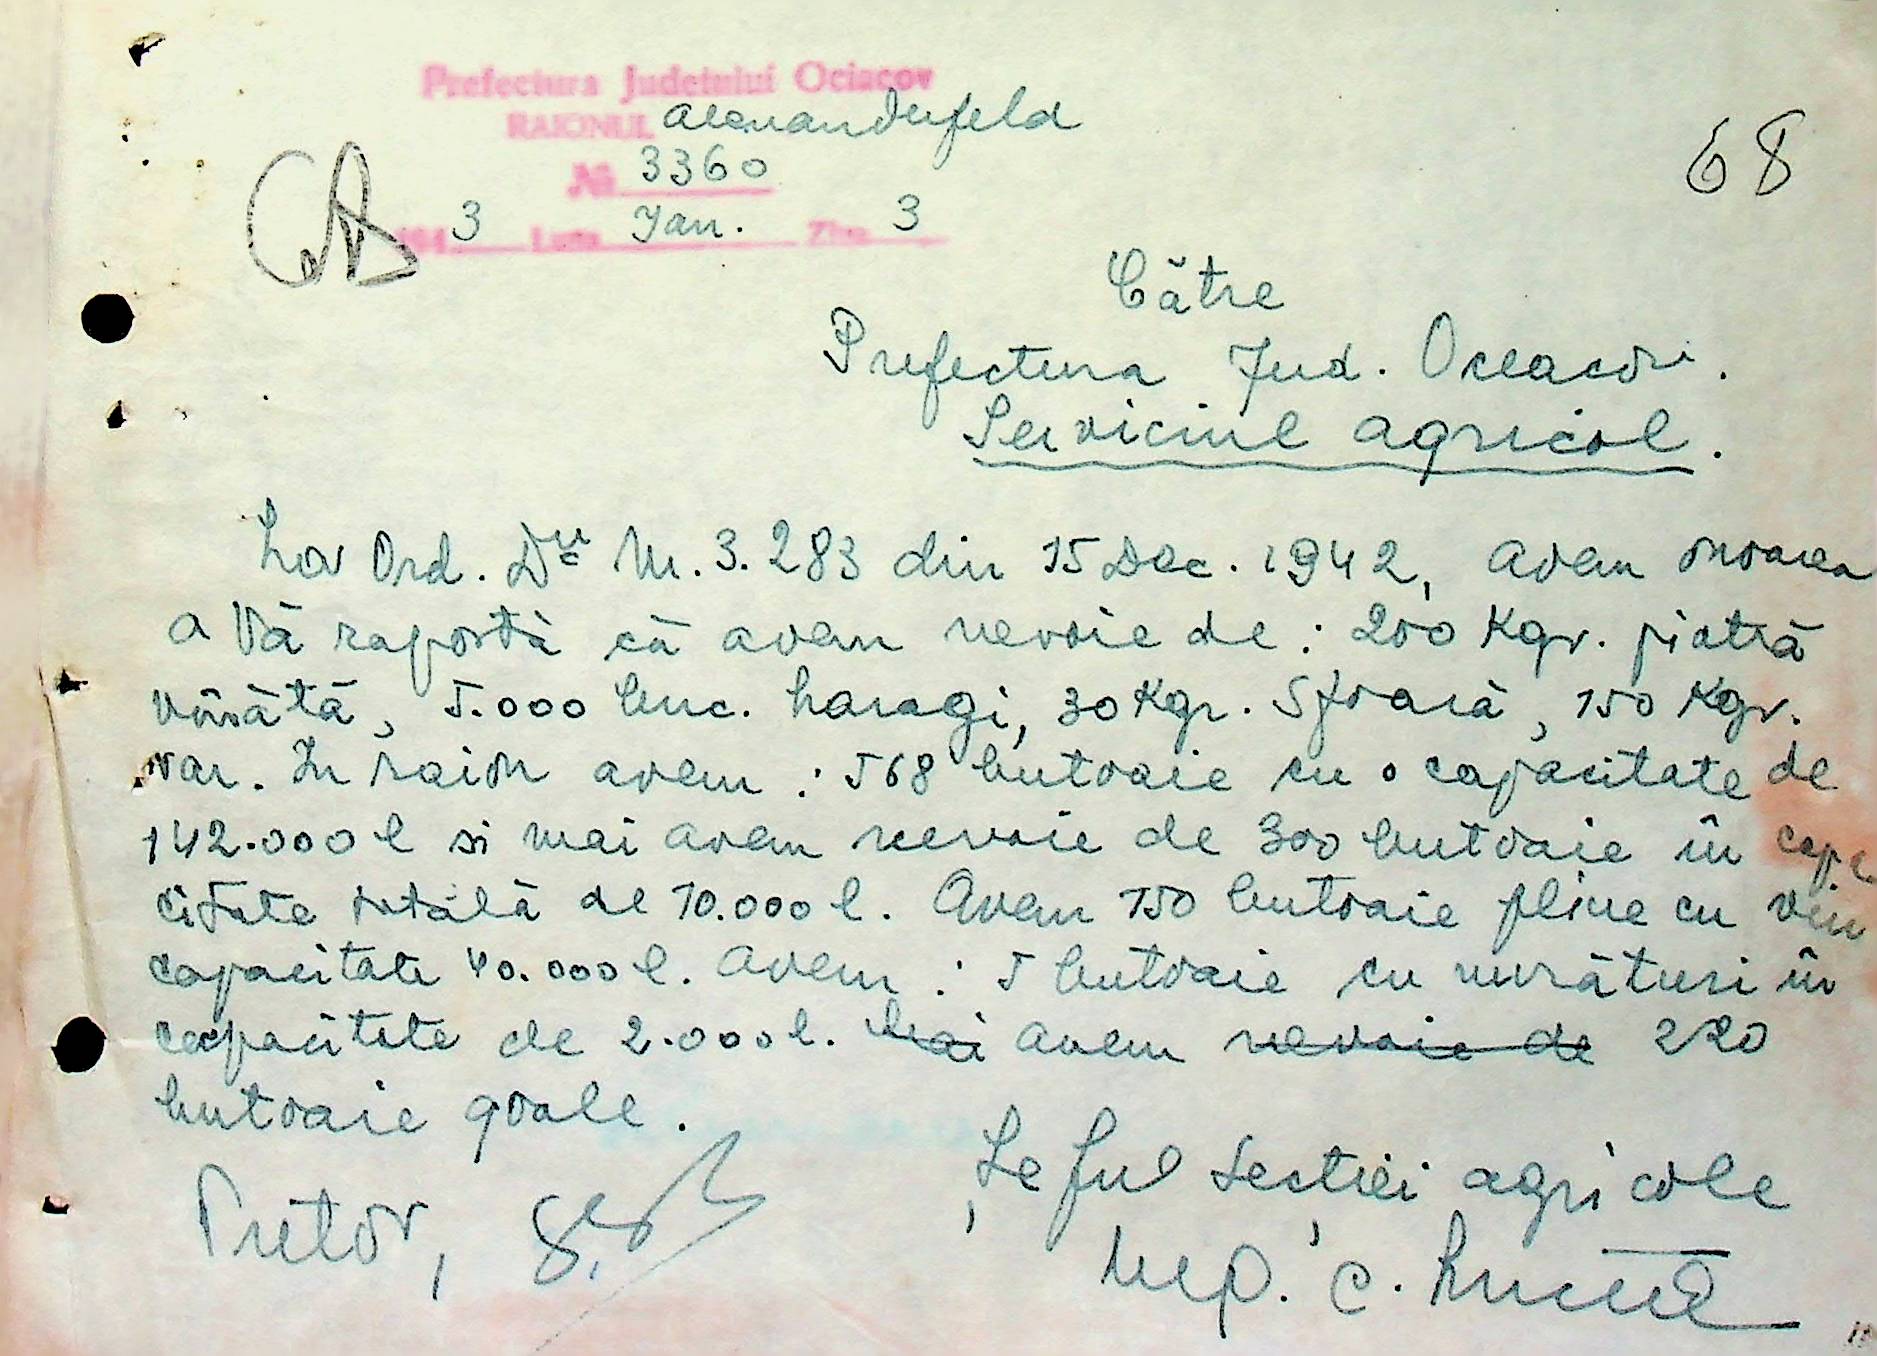 Prefectura Judetului Ociacov
RAIONUL Alexanderfeld
№ 3360
1943 Luna Jan. Ziua 3
68
Către
Prefectura Jud. Oceacov.
Serviciul agricol.
La Ord. Dvs Nr. 3.283 din 15 Dec. 1942, avem onoarea
a Vă raportà că avem nevoie de : 200 Kgr. piatră
vânătă, 5.000 buc. haragi, 30 Kgr. Sfoară, 150 Kgr.
var. In raion avem : 568 butoaie cu o capacitate de
142.000 l si mai avem nevoie de 300 butoaie în capa
citate totală de 70.000 l. Avem 150 butoaie pline cu vin
capacitate 40.000 l. Avem : 5 butoaie cu murături în
capacitate de 2.000 l. Mai avem nevoie de 220
butoaie goale.
Pretor,
Șeful Secției agricole
C.